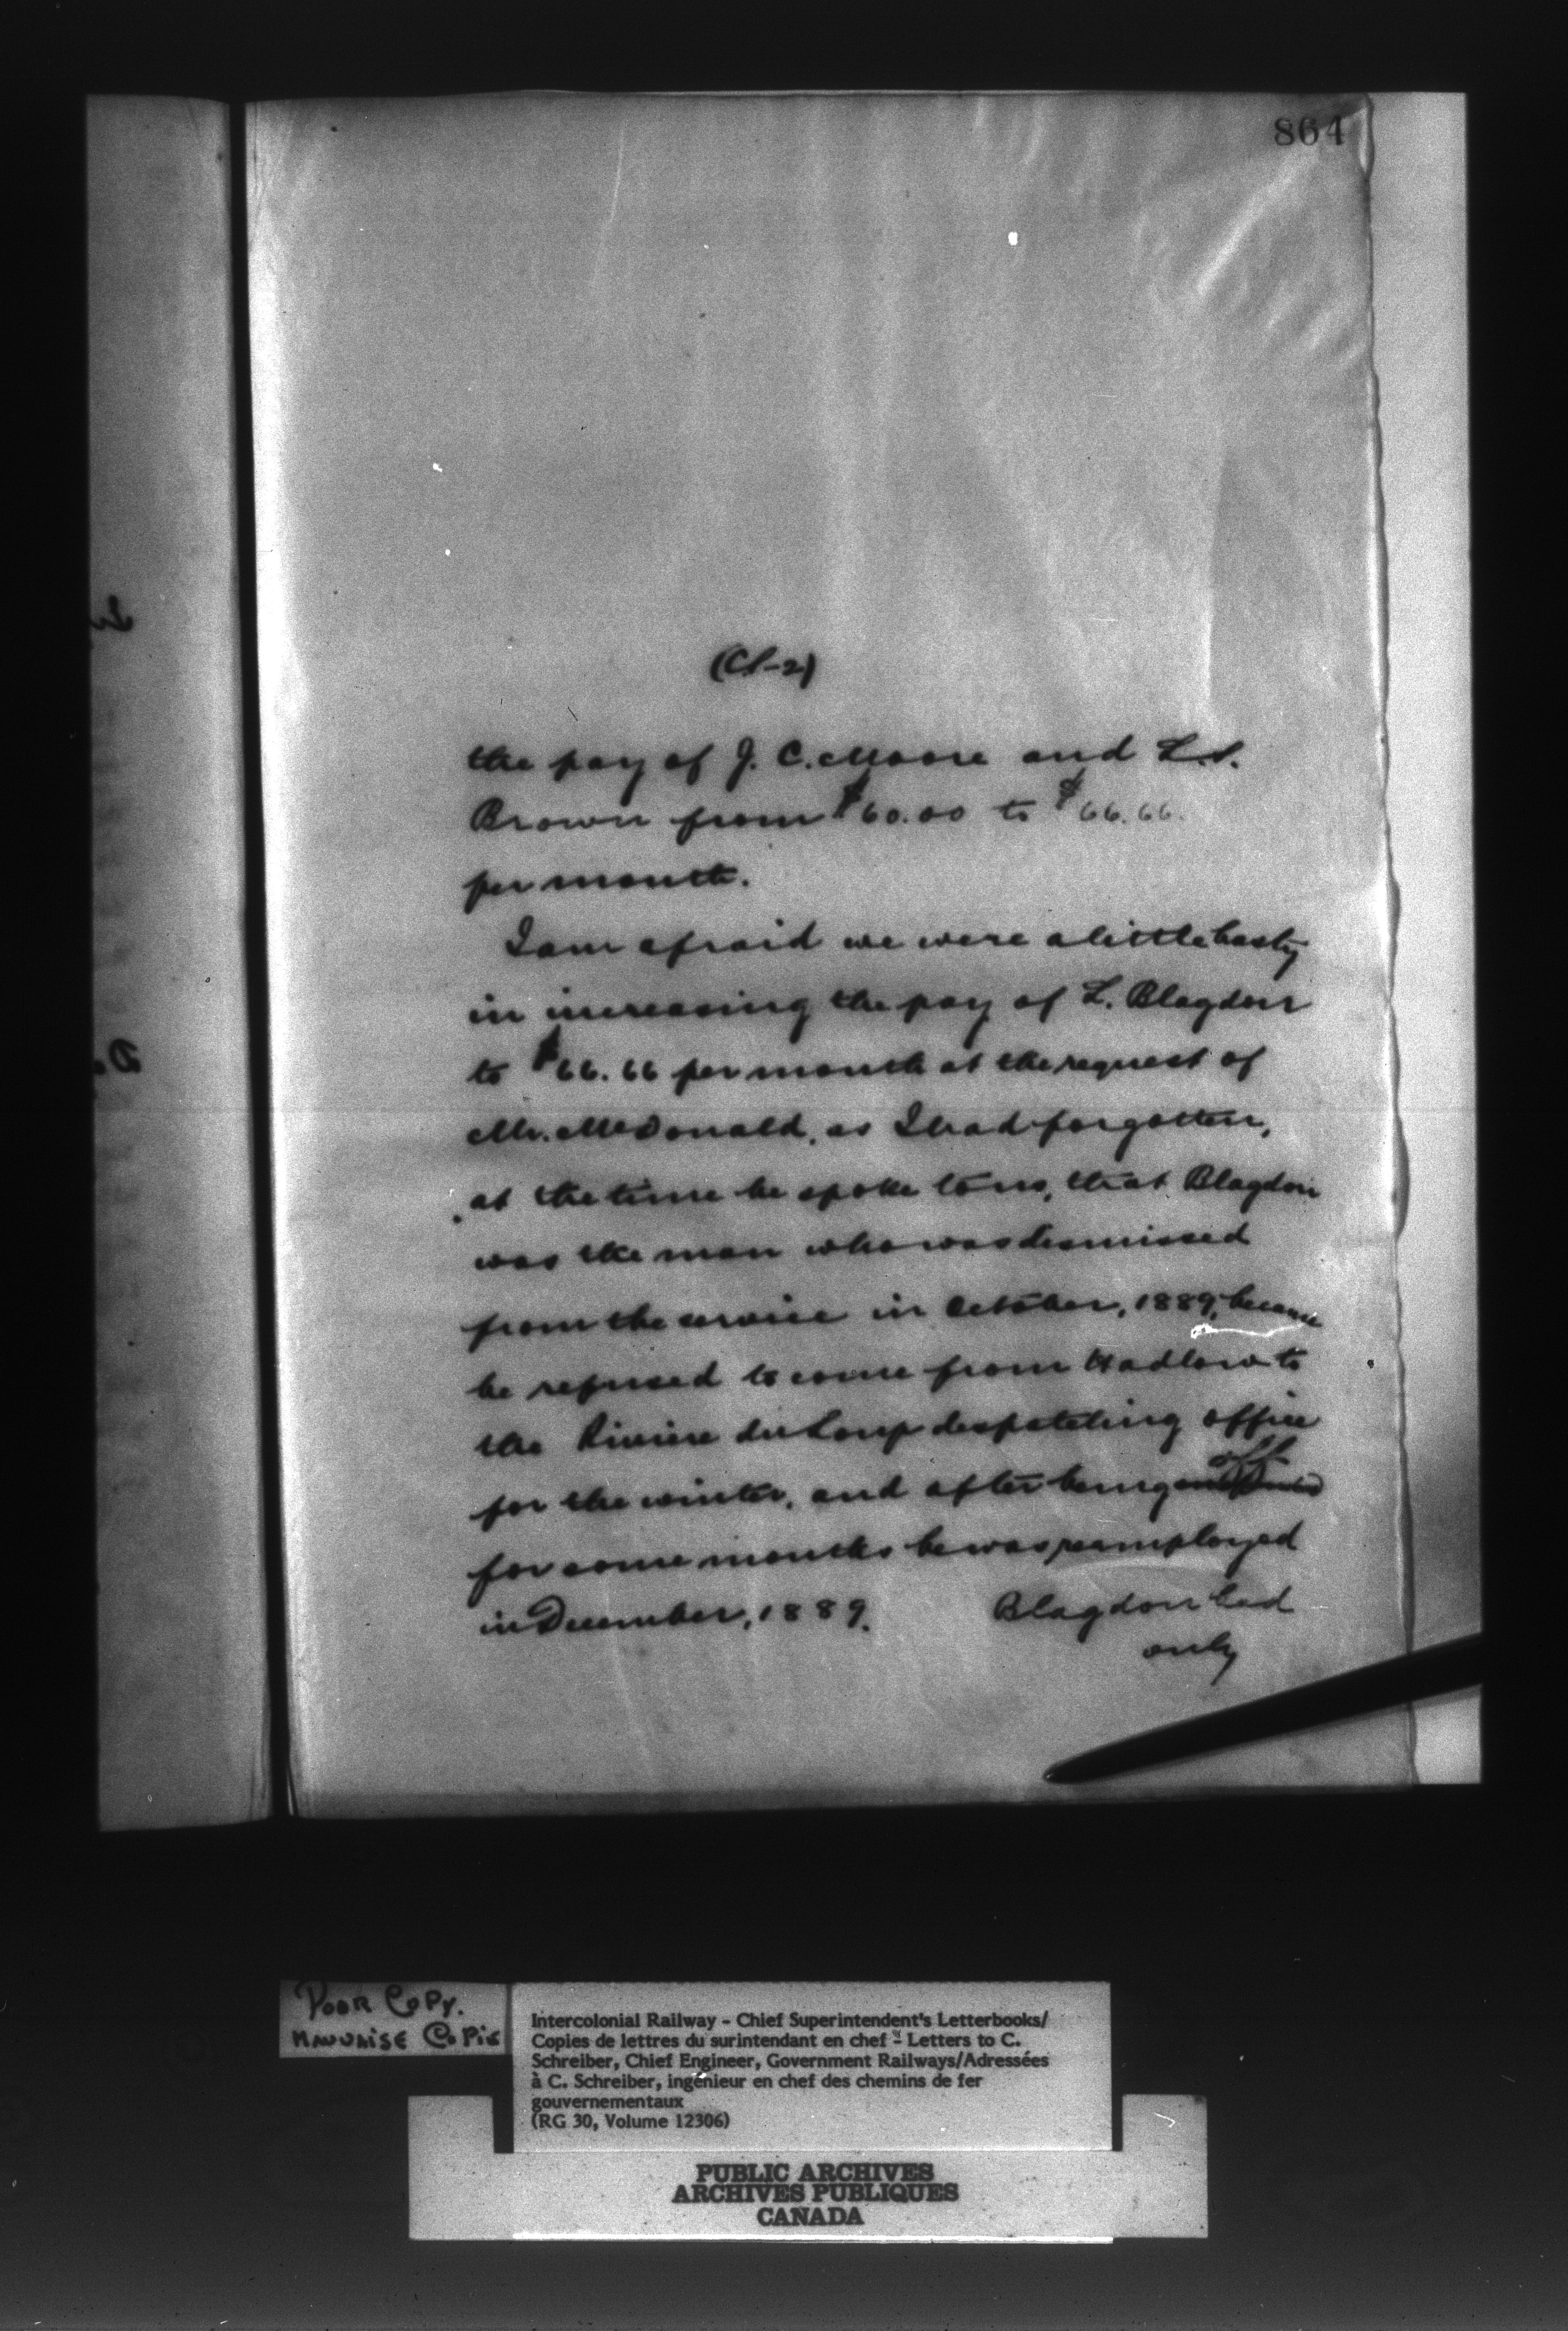 864
(CS-2)
the pay of J. C. Moore and L.S.
Brown from $60.00 to $66.66.
per month.
I am afraid we were a little hasty
in increasing the pay of L. Blagdon
to $66.66 per month at the request of
Mr. McDonald, as I had forgotten,
at the time he spoke to us, that Blagdon
was the man who was dismissed
from the service in October, 1889, because
he refused to come from Hadlow to
the Riviere du Loup despatching office
for the winter, and after being off
for some months he was reemployed
in December, 1889. Blagdon led
only
POOR COPY.
MAUVAISE COPIE
Intercolonial Railway - Chief Superintendent's Letterbooks/
Copies de lettres du surintendant en chef - Letters to C.
Schreiber, Chief Engineer, Government Railways/Adressées
à C. Schreiber, ingénieur en chef des chemins de fer
gouvernementaux
(RG 30, Volume 12306)
PUBLIC ARCHIVES
ARCHIVES PUBLIQUES
CANADA